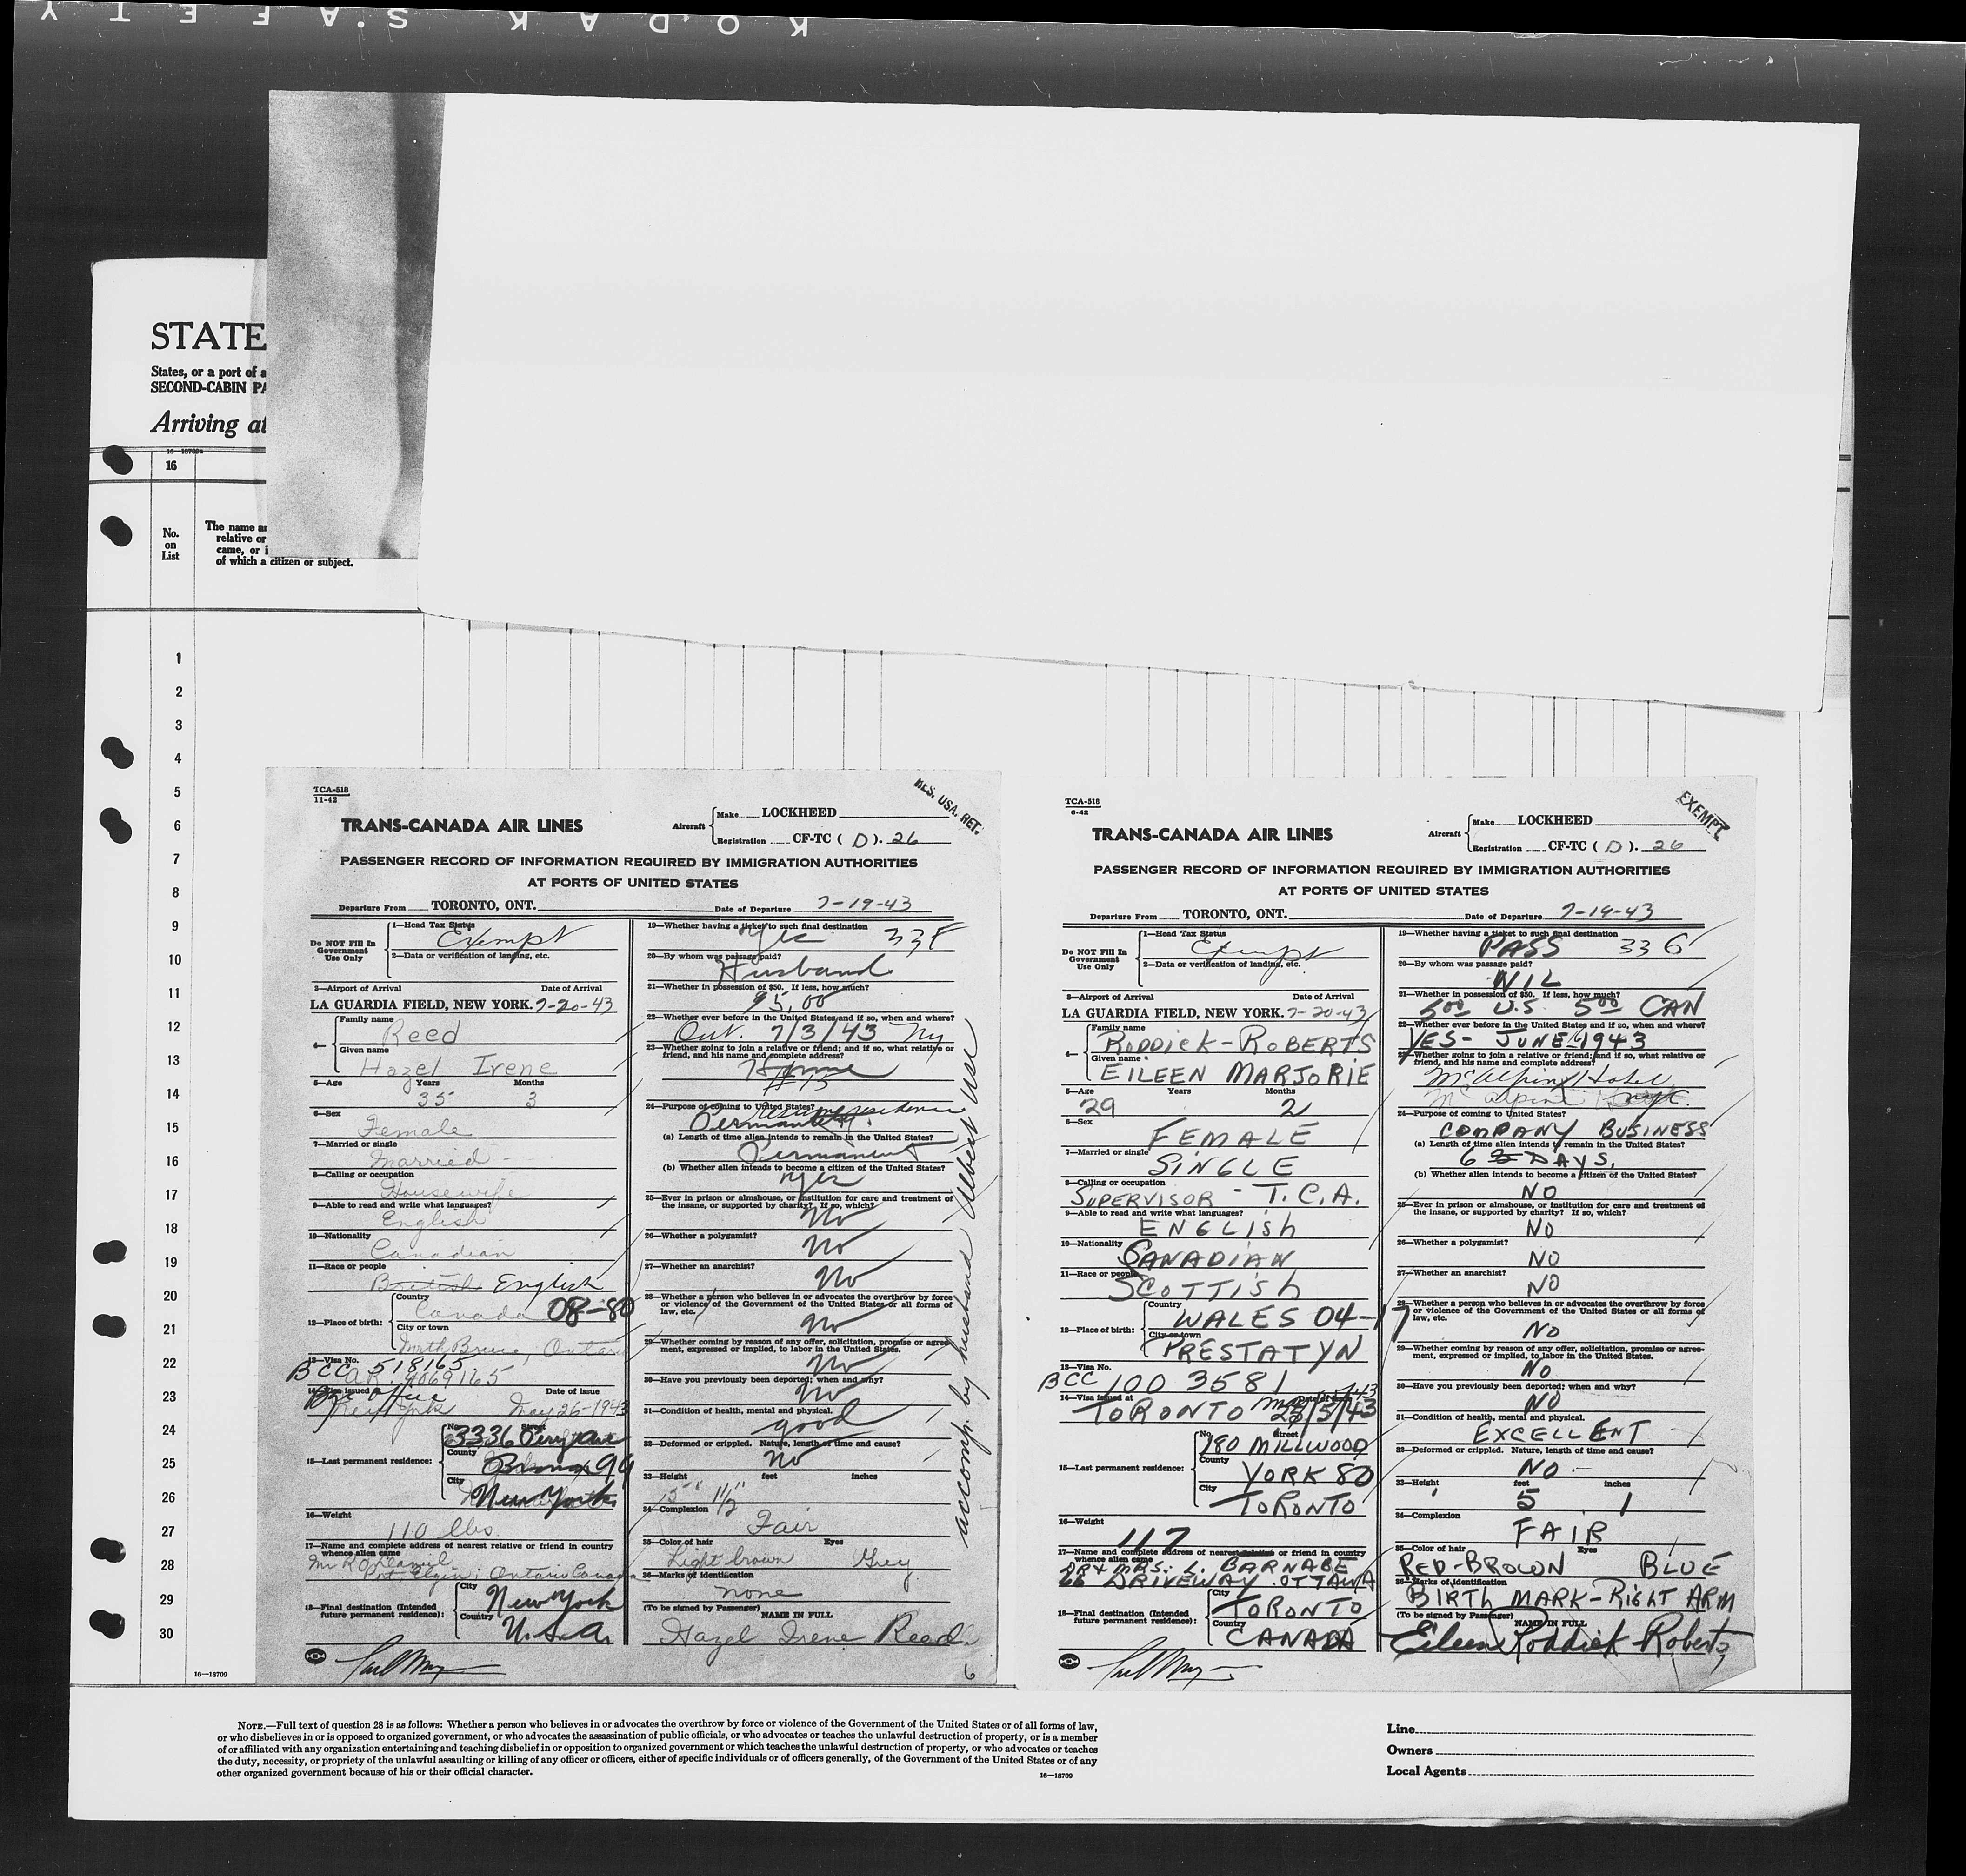 KODAK SAFETY
STATE
States, or a port of a
SECOND-CABIN PA
Arriving at
16—18709a
16
No.
on
List
The name an
relative or
came, or i
of which a citizen or subject.
1
2
3
4
5
6
7
8
9
10
11
12
13
14
15
16
17
18
19
20
21
22
23
24
25
26
27
28
29
30
16—18709
TCA-518
11-42
RES. USA. RET.
TRANS-CANADA AIR LINES
Aircraft
Make LOCKHEED
Registration CF-TC ( D ). 26
PASSENGER RECORD OF INFORMATION REQUIRED BY IMMIGRATION AUTHORITIES
AT PORTS OF UNITED STATES
Departure From TORONTO, ONT. Date of Departure 7-19-43
Do NOT Fill In
Government
Use Only
1—Head Tax Status
Exempt
2—Data or verification of landing, etc.
3—Airport of Arrival Date of Arrival
LA GUARDIA FIELD, NEW YORK. 7-20-43
4—
Family name
Reed
Given name
Hazel Irene
5—Age Years Months
35 3
6—Sex
Female
7—Married or single
Married
8—Calling or occupation
Housewife
9—Able to read and write what languages?
English
10—Nationality
Canadian
11—Race or people
British English
12—Place of birth:
Country
Canada 08-80
City or town
Bruce, Ontario
13—Visa No.
518165
BCC AR. 4069165
14—Visa issued at Date of issue
New York May 26-1943
15—Last permanent residence:
No. Street
3336 Perry Ave
County
Bronx 94
City
New York
16—Weight
110 lbs.
17—Name and complete address of nearest relative or friend in country
whence alien came
Port Elgin, Ontario Canada
18—Final destination (Intended
future permanent residence):
City
New York
Country
U.S.A.
19—Whether having a ticket to such final destination
Yes 33F
20—By whom was passage paid?
Husband
21—Whether in possession of $50. If less, how much?
95.00
22—Whether ever before in the United States and if so, when and where?
Out 7/3/43 Ny
23—Whether going to join a relative or friend; and if so, what relative or
friend, and his name and complete address?
Home
#15
24—Purpose of coming to United States?
resume residence
Permanent.
(a) Length of time alien intends to remain in the United States?
Permanent
(b) Whether alien intends to become a citizen of the United States?
Yes
25—Ever in prison or almshouse, or institution for care and treatment of
the insane, or supported by charity? If so, which?
No
26—Whether a polygamist?
No
27—Whether an anarchist?
No
28—Whether a person who believes in or advocates the overthrow by force
or violence of the Government of the United States or all forms of
law, etc.
No
29—Whether coming by reason of any offer, solicitation, promise or agree-
ment, expressed or implied, to labor in the United States.
No
30—Have you previously been deported; when and why?
No
31—Condition of health, mental and physical.
good
32—Deformed or crippled. Nature, length of time and cause?
No
33—Height feet inches
5" 1½"
34—Complexion
Fair
35—Color of hair Eyes
Light brown Grey
36—Marks of identification
none
(To be signed by Passenger) NAME IN FULL
Hazel Irene Reed
6
accomp. by husband Albert
TCA-518
6-42
EXEMPT
TRANS-CANADA AIR LINES
Aircraft
Make LOCKHEED
Registration CF-TC ( D ). 26
PASSENGER RECORD OF INFORMATION REQUIRED BY IMMIGRATION AUTHORITIES
AT PORTS OF UNITED STATES
Departure From TORONTO, ONT. Date of Departure 7-19-43
Do NOT Fill In
Government
Use Only
1—Head Tax Status
Exempt
2—Data or verification of landing, etc.
3—Airport of Arrival Date of Arrival
LA GUARDIA FIELD, NEW YORK. 7-20-43
4—
Family name
RODDICK-ROBERTS
Given name
EILEEN MARJORIE
5—Age Years Months
29 2
6—Sex
FEMALE
7—Married or single
SINGLE
8—Calling or occupation
SUPERVISOR - T.C.A.
9—Able to read and write what languages?
ENGLISH
10—Nationality
CANADIAN
11—Race or people
SCOTTISH
12—Place of birth:
Country
WALES 04-17
City or town
PRESTATYN
13—Visa No.
BCC 100 3581
14—Visa issued at Date of issue
TORONTO 25/5/43
15—Last permanent residence:
No. Street
180 MILLWOOD
County
YORK 80
City
TORONTO
16—Weight
117
17—Name and complete address of nearest relative or friend in country
whence alien came
DR & MRS. L. BARNABE
66 DRIVEWAY OTTAWA
18—Final destination (Intended
future permanent residence):
City
TORONTO
Country
CANADA
19—Whether having a ticket to such final destination
PASS 33 G
20—By whom was passage paid?
NIL
21—Whether in possession of $50. If less, how much?
5.00 U.S 5.00 CAN
22—Whether ever before in the United States and if so, when and where?
YES - JUNE 1943
23—Whether going to join a relative or friend; and if so, what relative or
friend, and his name and complete address?
McAlpin Hotel
24—Purpose of coming to United States?
COMPANY BUSINESS
(a) Length of time alien intends to remain in the United States?
6 DAYS.
(b) Whether alien intends to become a citizen of the United States?
NO
25—Ever in prison or almshouse, or institution for care and treatment of
the insane, or supported by charity? If so, which?
NO
26—Whether a polygamist?
NO
27—Whether an anarchist?
NO
28—Whether a person who believes in or advocates the overthrow by force
or violence of the Government of the United States or all forms of
law, etc.
NO
29—Whether coming by reason of any offer, solicitation, promise or agree-
ment, expressed or implied, to labor in the United States.
NO
30—Have you previously been deported; when and why?
NO
31—Condition of health, mental and physical.
EXCELLENT
32—Deformed or crippled. Nature, length of time and cause?
NO
33—Height feet inches
5 1
34—Complexion
FAIR
35—Color of hair Eyes
RED-BROWN BLUE
36—Marks of identification
BIRTH MARK-RIGHT ARM
(To be signed by Passenger) NAME IN FULL
Eileen Roddick-Roberts
NOTE.—Full text of question 28 is as follows: Whether a person who believes in or advocates the overthrow by force or violence of the Government of the United States or of all forms of law,
or who disbelieves in or is opposed to organized government, or who advocates the assassination of public officials, or who advocates or teaches the unlawful destruction of property, or is a member
of or affiliated with any organization entertaining and teaching disbelief in or opposition to organized government or which teaches the unlawful destruction of property, or who advocates or teaches
the duty, necessity, or propriety of the unlawful assaulting or killing of any officer or officers, either of specific individuals or of officers generally, of the Government of the United States or of any
other organized government because of his or their official character.
16—18709
Line
Owners
Local Agents